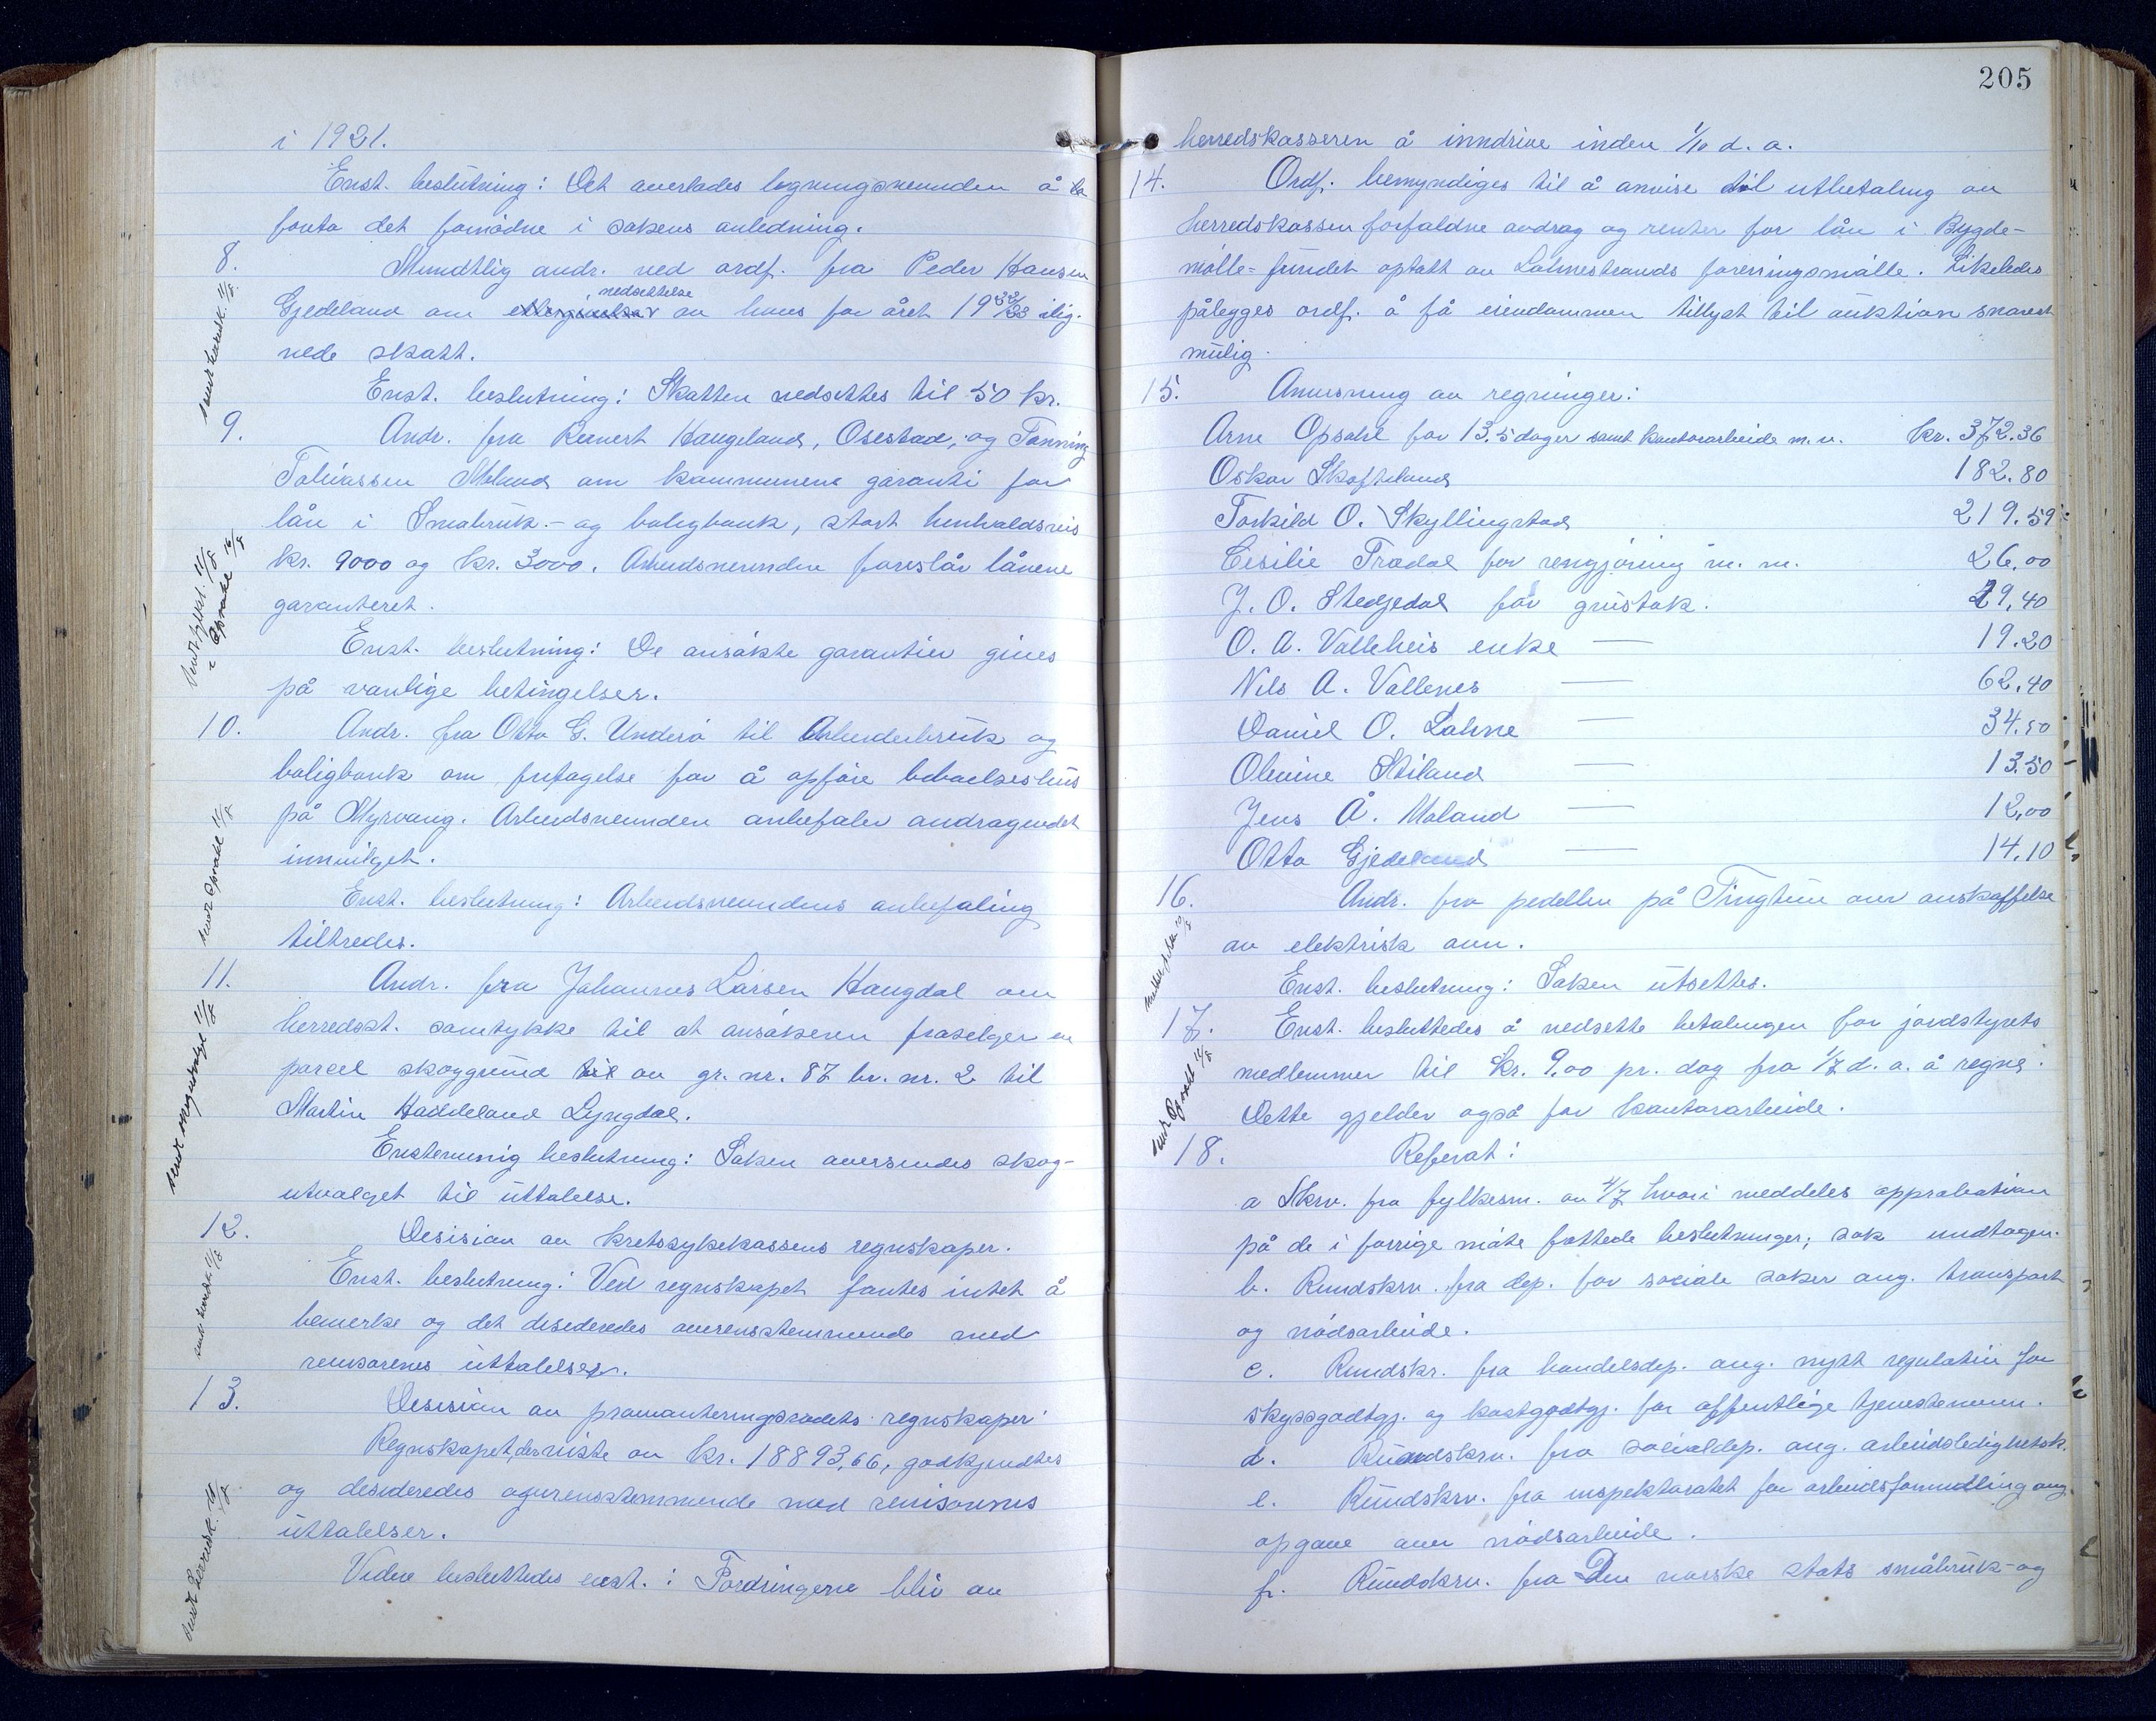 i 1921.
Enst. beslutning: Det overlades ligningsnevnden å ta
foreta det fornødne i sakens anledning.
8. Mundtlig andr. ved ordf. fra Peder Hansen
nedsettelse
Gjedeland om av hans for året 1922/23 ilig-
nede skatt.
Enst. beslutning: Skatten nedsettes til 50 kr.
sendt herredsk. 11/8
9. Andr. fra Reinert Haugeland, Osestad, og Tønning
Tobiassen Moland om kommunens garanti for
lån i Småbruk- og boligbank, stort henholdsvis
kr. 9000 og kr. 3000. Arbeidsnevnden foreslår lånene
garanteret.
Enst. beslutning: De ansøkte garantier gives
på vanlige betingelser.
10. Andr. fra Otto G. Underø til Arbeiderbruk og
boligbank om fritagelse for å opføre beboelseshus
på Myrvang. Arbeidsnevnden anbefaler andragendet
innvilget.
sendt Opsahl 11/8
Enst. beslutning: Arbeidsnevndens anbefaling
tiltredes.
11. Andr. fra Johannes Larsen Haugdal om
herredsst. samtykke til at ansøkeren fraselger en
parcel skoggrund til av gr. nr. 87 br. nr. 2 til
Martin Haddeland Lyngdal.
sendt skogutvalget 11/8
Enstemmig beslutning: Saken oversendes skog-
utvalget til uttalelse.
12. Desision av kretssykekassens regnskaper.
Enst. beslutning: Ved regnskapet fantes intet å
bemerke og det desideredes overensstemmende med
revisorenes uttalelser.
sendt herredsk. 11/8
13. Desision av provianteringsrådets regnskaper
Regnskapet, der viste en kr. 18893,66, godkjendtes
og desideredes overensstemmende med revisorenes
uttalelser.
sendt herredsk. 16/8
Videre besluttedes enst.: Fordringene blir av
205
herredskasseren å inndrive inden 1/10 d. a.
14. Ordf. bemyndiges til å anvise til utbetaling av
herredskassen forfaldne avdrag og renter for lån i Bygde-
mølle-fundet optatt av Lohnestrands foreningsmølle. Likeledes
pålegges ordf. å få eiendommen tillyst til auktion snarest
mulig.
15. Anvisning av regninger:
Arne Opsahl for 13.5 dager samt kontorarbeide m. v. kr. 372.36
Oskar Skofteland 182.80
Torkild O. Skyllingstad 219.59
Cisilie Trædal for rengjøring m. m. 26,00
J. O. Stedjedal for grustak. 29,40
O. A. Valleheis enke — 19.20
Nils A. Vallenes — 62,40
Daniel O. Lohne — 34.50
Olevine Stiland — 13.50
Jens Å. Moland — 12,00
Otto Gjedeland — 14.10
16. Andr. fra pedellen på Tingtun om anskaffelse
av elektrisk ovn.
Enst. beslutning: Saken utsettes.
17. Enst. besluttedes å nedsette betalingen for jordstyrets
medlemmer til kr. 9.00 pr. dag fra 1/7 d. a. å regne.
Dette gjelder også for kontorarbeide.
sendt Opsahl 12/8
18. Referat:
a Skrv. fra fylkesm. av 4/7 hvori meddeles approbation
på de i forrige møte fattede beslutninger; sak undtagen.
b. Rundskrv. fra dep. for sociale saker ang. transport
og nødsarbeide.
c. Rundskr. fra handelsdep. ang. nytt regulativ for
skyssgodtgj. og kostgodtgj. for offentlige tjenestemenn.
d. Rundskrv. fra socialdep. ang. arbeidsledighetsk.
e. Rundskrv. fra inspektoratet for arbeidsformidling ang.
opgave over nødsarbeide.
f. Rundskrv. fra Den norske stats småbruk- og